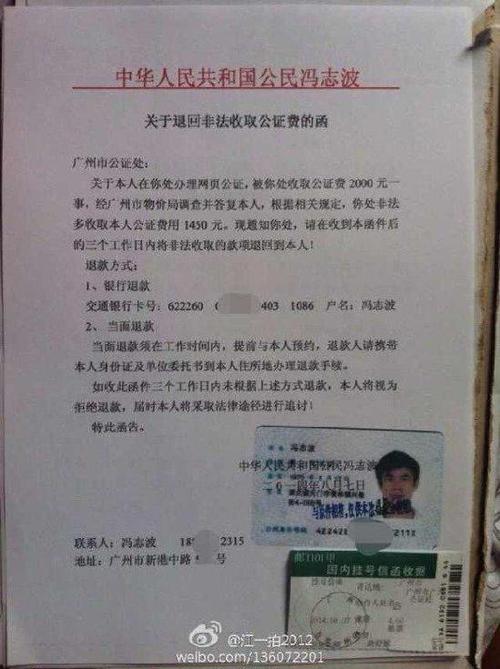 中华人民共和国公民冯志波
关于退回非法收取公证费的函
广州市公证处:
关于本人在你处办理网页公证,被你处收取公证费2000元一
事,经广州市物价局调查并答复本人,根据相关规定,你处非法
多收取本人公证费用1450元。现通知你处,请在收到本函件后
的三个工作日内将非法收取的款项退回到本人!
退款方式:
1、银行退款
交通银行卡号:622260 0 403 1086 户名:冯志波
2、当面退款
当面退款须在工作时间内,提前与本人预约,退款人请携带
本人身份证及单位委托书到本人住所地办理退款手续。
如收此函件三个工作日内未根据上述方式退款,本人将视为
拒绝退款,届时本人将采取法律途径进行追讨!
特此函告。
冯志波
中华人民共和国公民冯志波
二〇一四年八月七日
联系人:冯志波 18 2315
地址:广州市新港中路 号
国内挂号信函收据
@江一拍2012
weibo.com/136072201